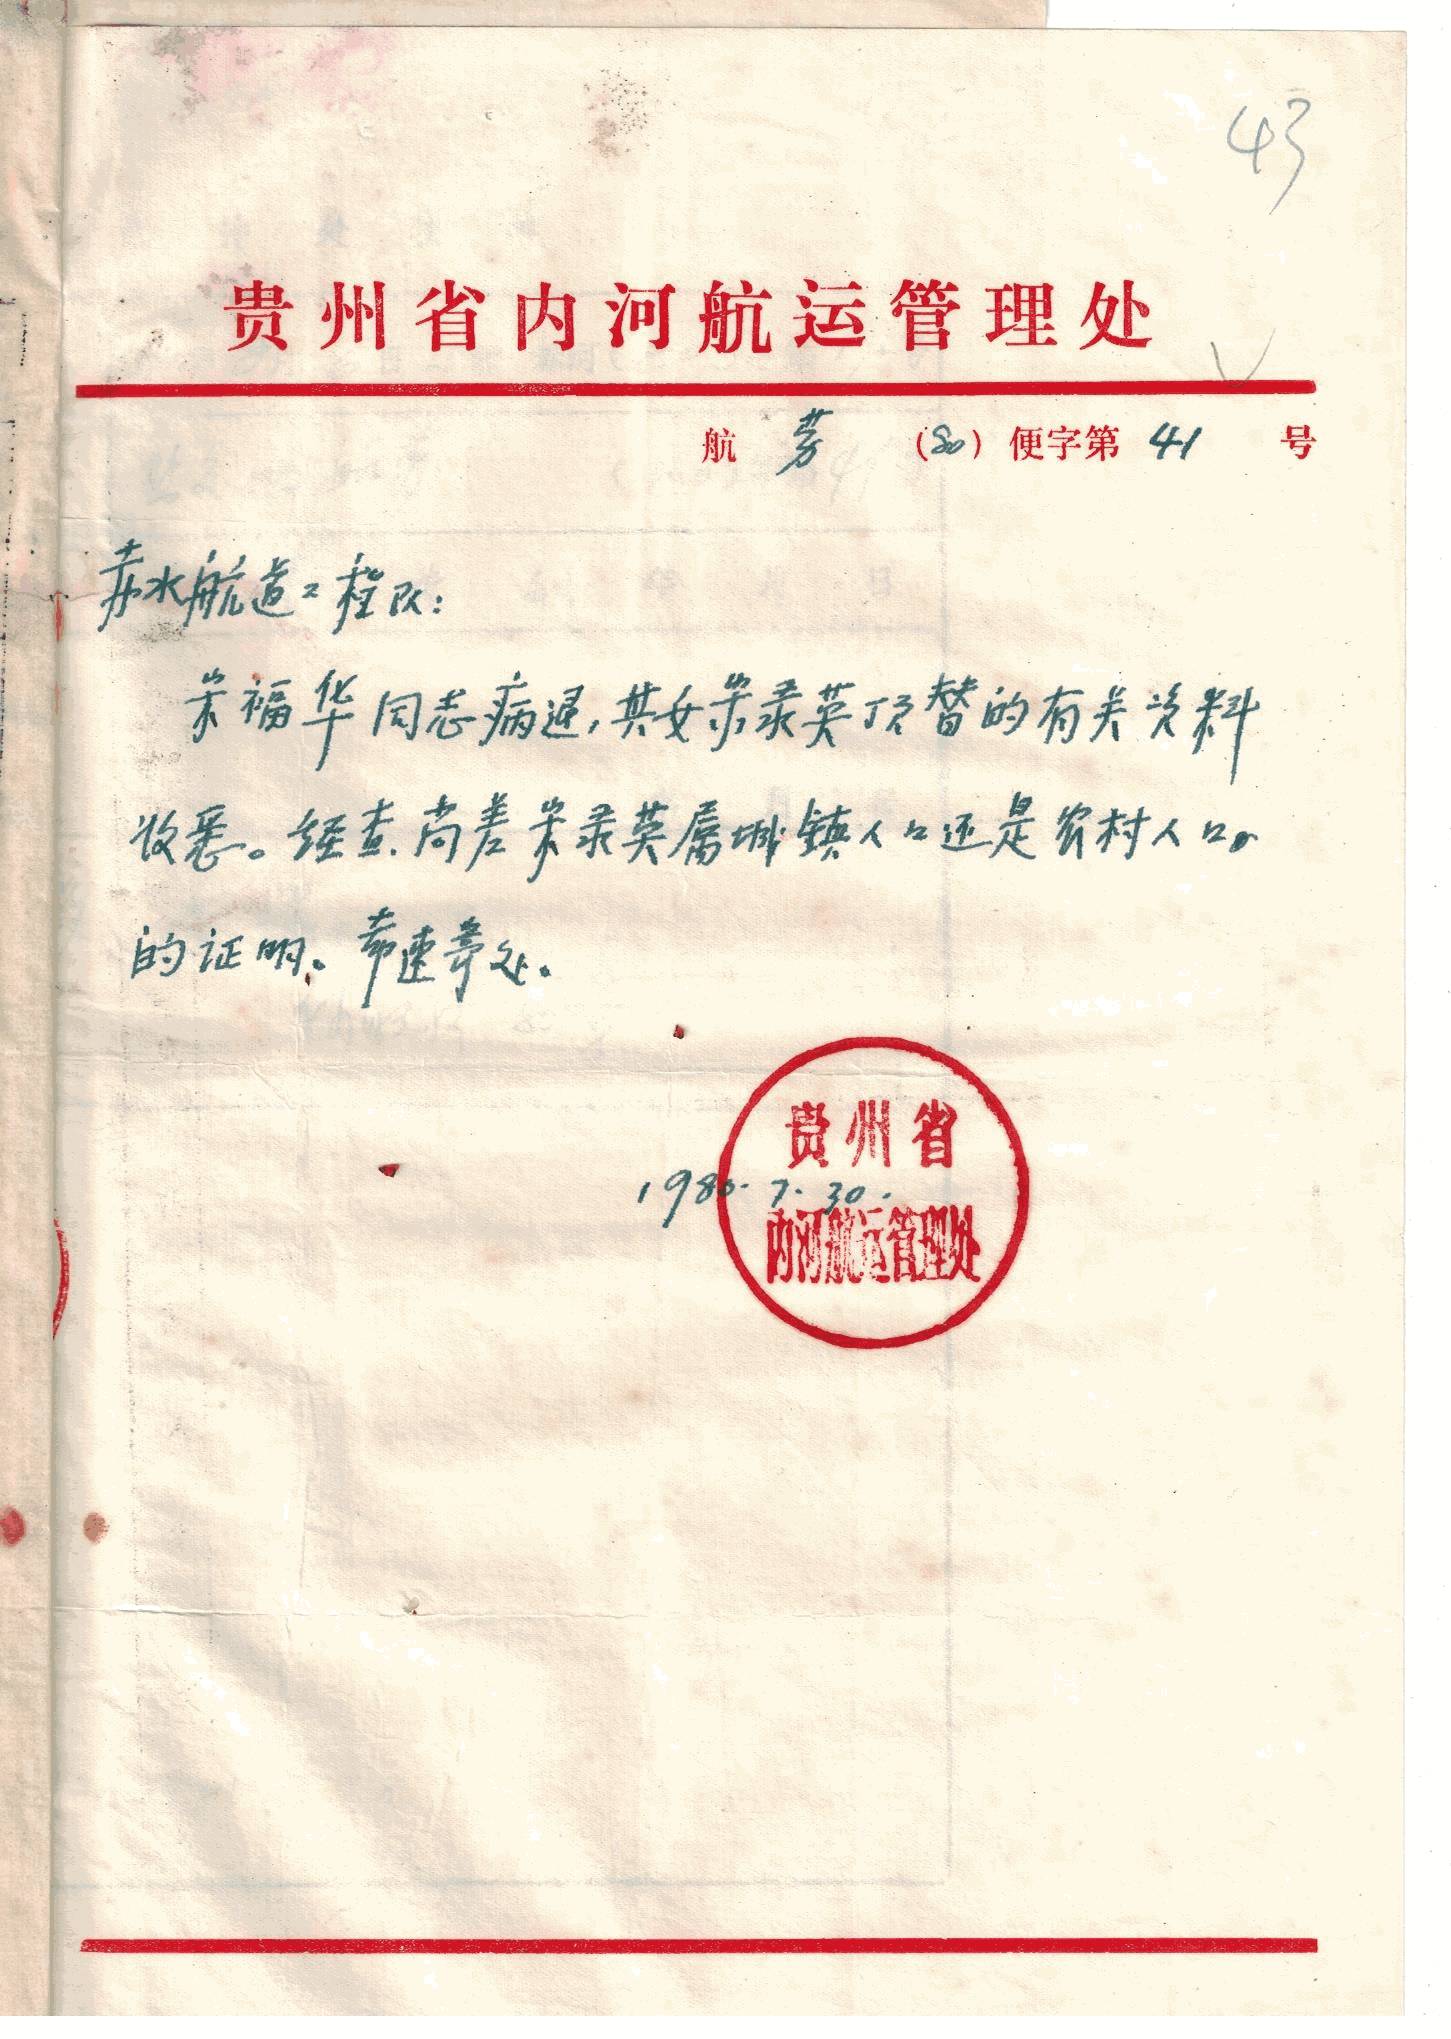 43
贵州省内河航运管理处
航 劳 (80) 便字第 41 号
赤水航道工程队:
宋福华同志病退,其女宋录英顶替的有关资料
收悉。经查,尚差宋录英属城镇人口还是农村人口。
的证明。希速寄处。
贵州省
1980.7.30.
内河航运管理处